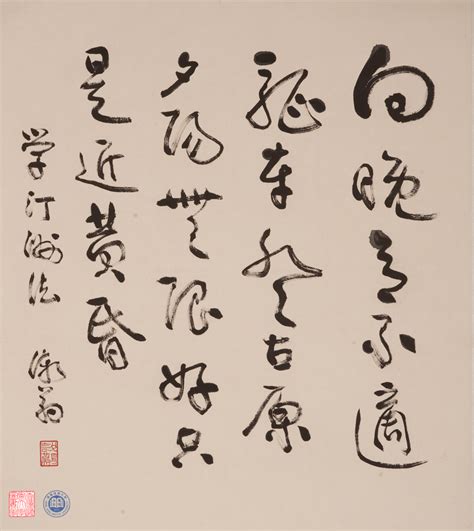 向晚意不適
驅車登古原
夕陽無限好只
是近黃昏
学汀洲法